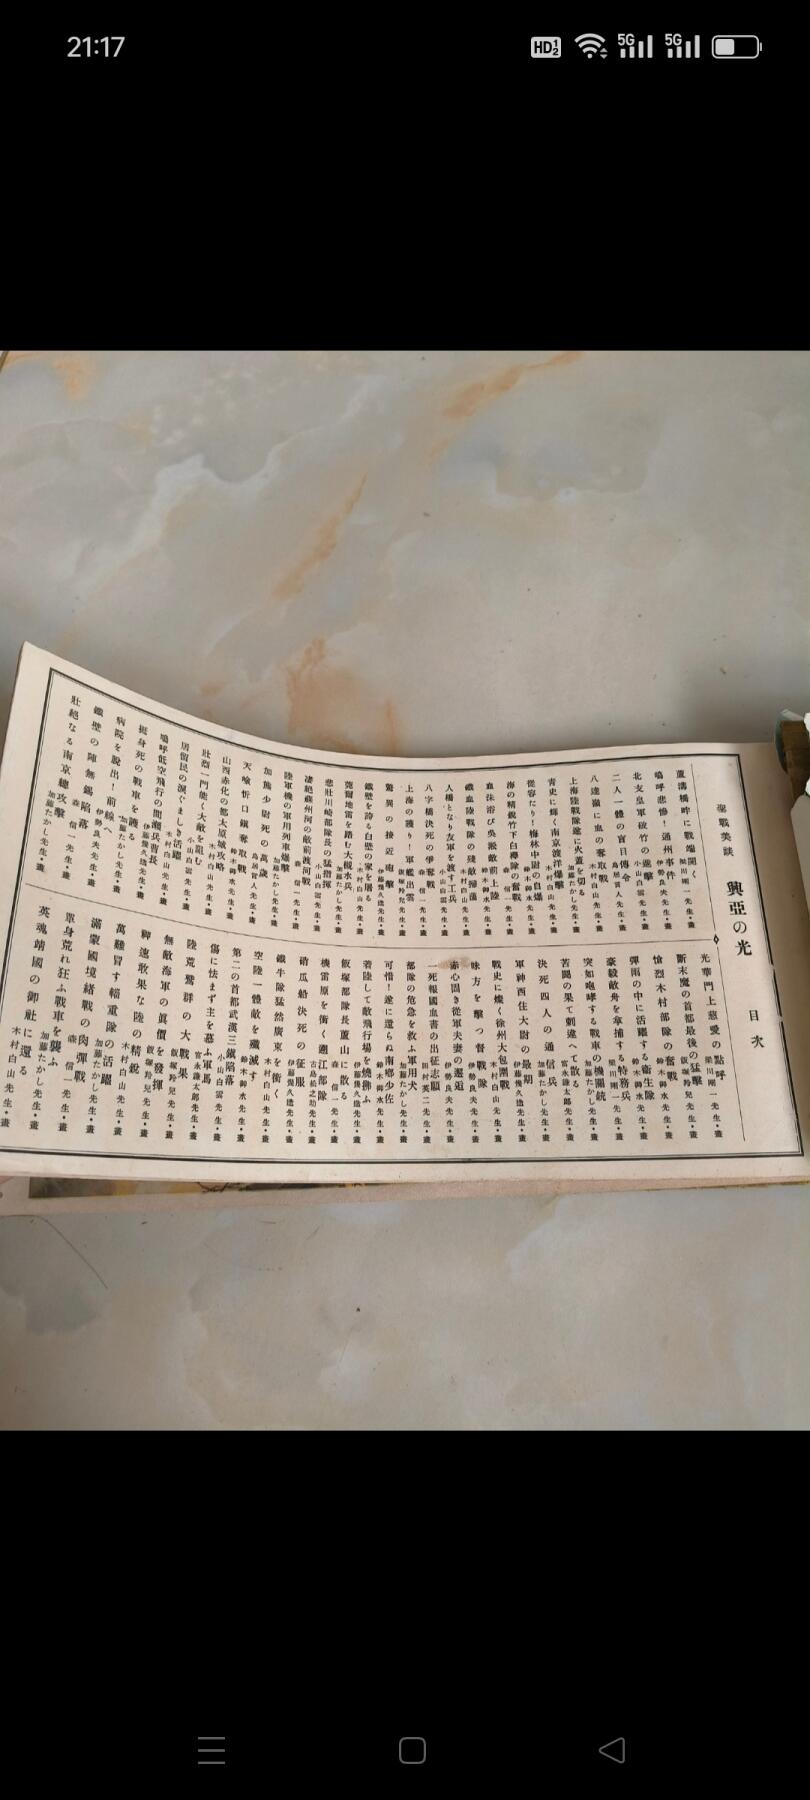 21:17
聖戰美談 興亞の光 目次
蘆溝橋畔に戰端開く 梁川剛一先生・畫
嗚呼悲慘！通州事件 伊勢良夫先生・畫
北支皇軍破竹の進擊 小山白雲先生・畫
二人一體の盲目傳令
八達嶺に血の奪取戰 木村白山先生・畫
上海陸戰隊遂に火蓋を切る 加藤たかし先生・畫
青史に輝く南京渡洋爆擊
從容たり！梅林中尉の自爆 鈴木御水先生・畫
海の精銳竹下白襷隊の奮戰
血沫浴び吳淞敵前上陸 鈴木御水先生・畫
鐵血陸戰隊の殘敵掃蕩 木村白山先生・畫
人橋となり友軍を渡す工兵 小山白雲先生・畫
八字橋決死の爭奪戰 森信一先生・畫
上海の護り！軍艦出雲 飯塚羚兒先生・畫
驚異の接近砲擊 伊藤幾久造先生・畫
鐵壁を誇る白壁の家を屠る 加藤たかし先生・畫
莞爾地雷を踏む大櫃水兵 木村白山先生・畫
悲壯川崎部隊長の猛指揮 加藤たかし先生・畫
凄絕蘇州河の敵前渡河戰 小山白雲先生・畫
陸軍機の軍用列車爆擊 森信一先生・畫
加施少尉死の萬歲 加藤たかし先生・畫
天喩忻口鎭奪取戰
山西赤化の都太原城攻略 鈴木御水先生・畫
壯烈一門能く大敵を阻む 木村白山先生・畫
居留民の淚ぐましき活躍 小山白雲先生・畫
嗚呼低空飛行の間瀨兵曹長 木村白山先生・畫
挺身死の戰車を護る 伊藤幾久造先生・畫
病院を脫出！前線へ 加藤たかし先生・畫
鐵壁の陣無錫陷落 伊勢良夫先生・畫
壯絕なる南京總攻擊 森信一先生・畫
加藤たかし先生・畫
光華門上慈愛の點呼 梁川剛一先生・畫
斷末魔の首都最後の猛擊 飯塚羚兒先生・畫
愴烈木村部隊の奮戰 鈴木御水先生・畫
彈雨の中に活躍する衞生隊 鈴木御水先生・畫
豪毅敵舟を拿捕する特務兵 梁川剛一先生・畫
突如咆哮する戰車の機關銃 加藤たかし先生・畫
苦鬪の果て刺違へて散る 富永謙太郎先生・畫
決死四人の通信兵 加藤たかし先生・畫
軍神西住大尉の最期 伊藤幾久造先生・畫
戰史に燦く徐州大包圍戰 木村白山先生・畫
味方を擊つ督戰隊 伊勢良夫先生・畫
赤心固き從軍夫妻の邂逅 伊勢良夫先生・畫
一死報國血書の出征志願 田村英二先生・畫
部隊の危急を救ふ軍用犬 加藤たかし先生・畫
可惜！遂に還らぬ南鄕少佐 鈴木御水先生・畫
着陸して敵飛行場を燒拂ふ 伊藤幾久造先生・畫
飯塚部隊長蘆山に散る 森信一先生・畫
機雷原を衝く遡江部隊 古島松之助先生・畫
硝瓜船決死の征服 伊藤幾久造先生・畫
鐵牛隊猛然廣東を衝く 木村白山先生・畫
空陸一體敵を殲滅す 鈴木御水先生・畫
第二の首都武漢三鎭陷落 小山白雲先生・畫
傷に怯まず主を慕ふ軍馬
陸荒鷲群の大戰果 富永謙太郎先生・畫
無敵海軍の眞價を發揮 飯塚羚兒先生・畫
神速敢果な陸の精銳 飯塚羚兒先生・畫
萬難冒す輜重隊の活躍 木村白山先生・畫
滿蒙國境緖戰の肉彈戰 加藤たかし先生・畫
單身荒れ狂ふ戰車を襲ふ 森信一先生・畫
英魂靖國の御社に還る 加藤たかし先生・畫
木村白山先生・畫